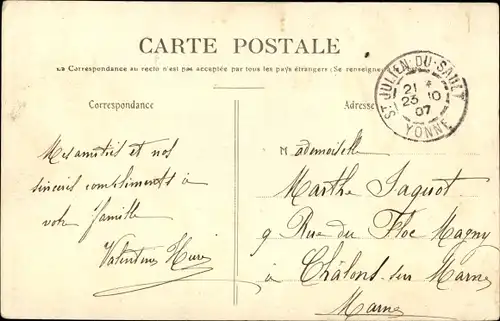 CARTE POSTALE
La Correspondance au recto n'est pas acceptée par tous les pays étrangers (Se renseigner
Correspondance
Adresse
ST JULIEN-DU-SAULT
21 *
23 10
07
YONNE
Mes amitiés et nos
sincères compliments à
votre famille
Valentine
Mademoiselle
Marthe Jaquot
9 Rue du Floc Magny
à Châlons sur Marne
Marne